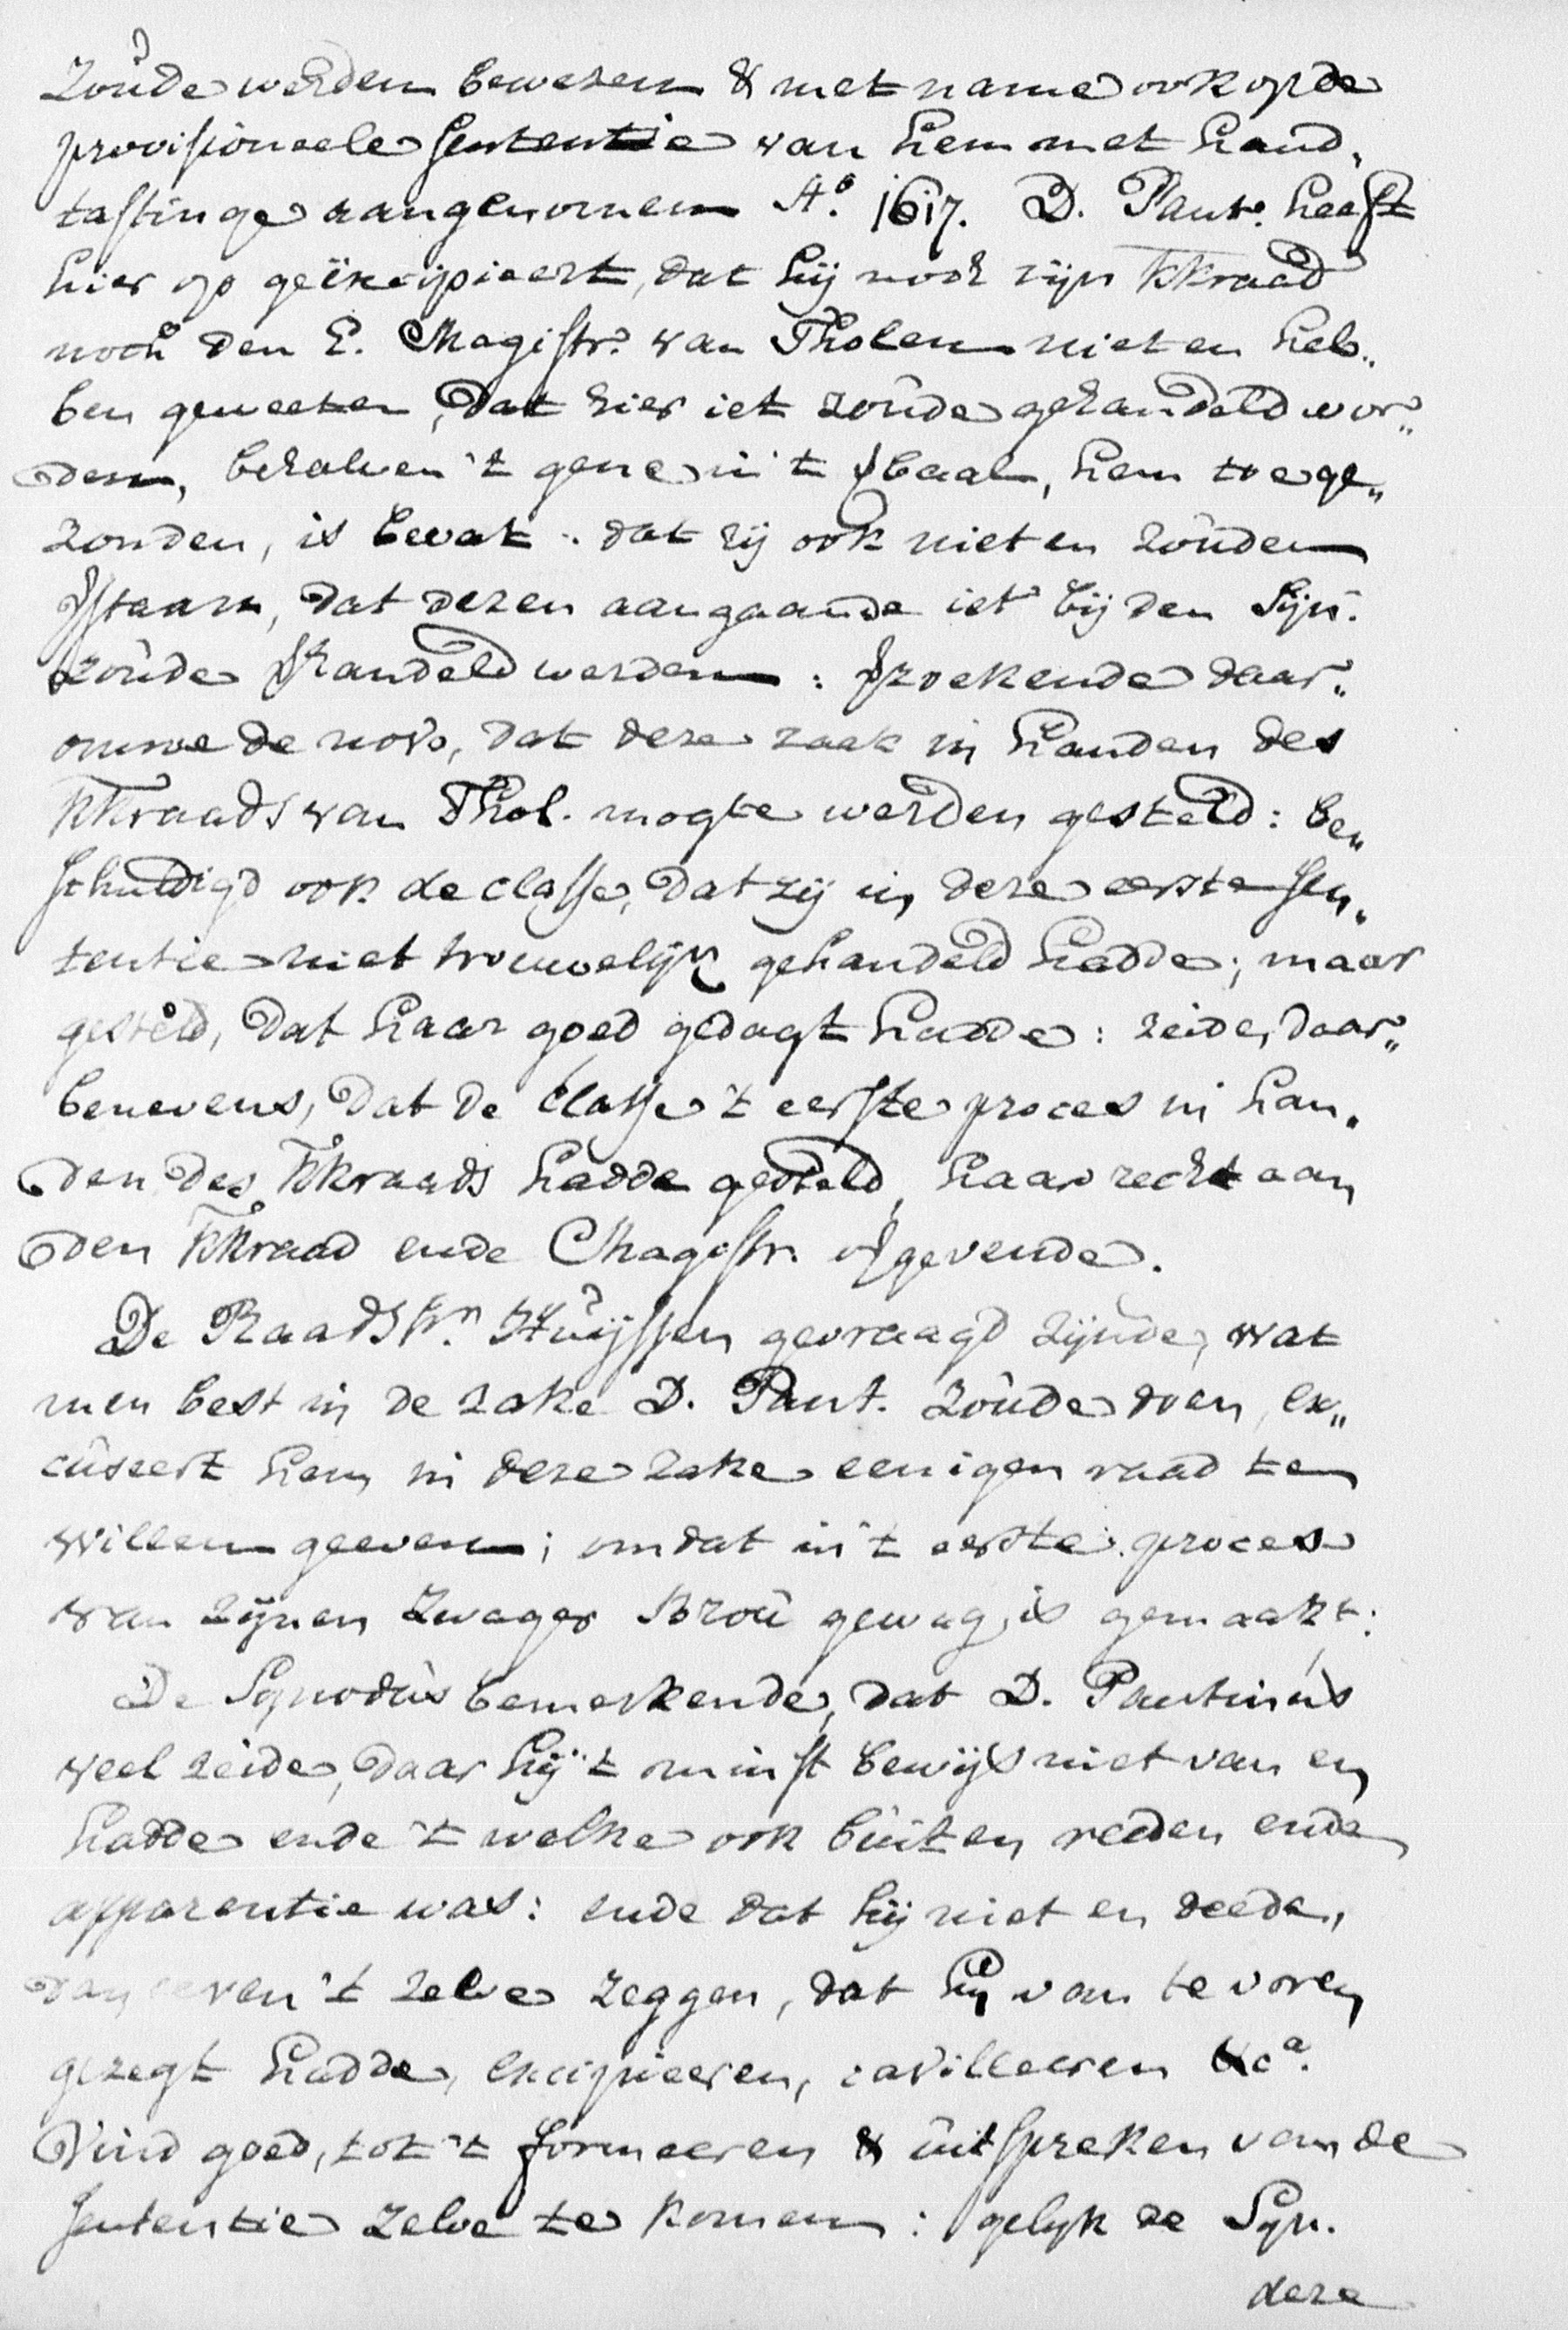 zoude werden bewesen & met name ook op de
provisioneele sententie van hem met hand„
tastinge aangenomen A°. 1617. D. Pant. heeft
hier op geëxcipieert, dat hij noch zijn kkraad
noch den E. Magistr. van Tholen niet en heb„
ben geweeten, dat hier iet zoude gehandeld wor„
den, behalven 't gene in 't verbaal, hem toege„
zonden, is bevat: dat zij ook niet en zouden
verstaan, dat dezen aangaande iet bij den Syn.
zoude verhandeld werden: verzoekende daar„
omme de novo, dat deze zaak in handen des
kkraads van Thol. mogte werden gesteld: be„
schuldigd ook de classe, dat zij in deze eerste sen„
tentie niet trouwelijk gehandeld hadde; maar
gesteld, dat haar goed gedagt hadde: zeide, daar„
benevens, dat de classe 't eerste proces in han„
den des kkraads hadde gesteld, haar recht aan
den kkraad ende Magistr. overgevende.
De Raadshr. Huijssen gevraagd zijnde, wat
men best in de zake D. Pant. zoude doen, ex„
cuseert hem in deze zake eenigen raad te
willen geeven; omdat in 't eerste proces
van zijnen Zwager Brou gewag is gemaakt:
De Synodus bemerkende, dat D. Pantinus
veel zeide, daar hij 't minst bewijs niet van en
hadde ende 't welke ook buiten reden ende
apparentie was: ende dat hij niet en deede,
dan even 't zelve zeggen, dat hij van te voren
gezegt hadde, excipieeren, cavilleeren &cª.
Vind goed, tot 't formeeren & uitspreken van de
sententie zelve te komen: gelijk de Syn.
deze